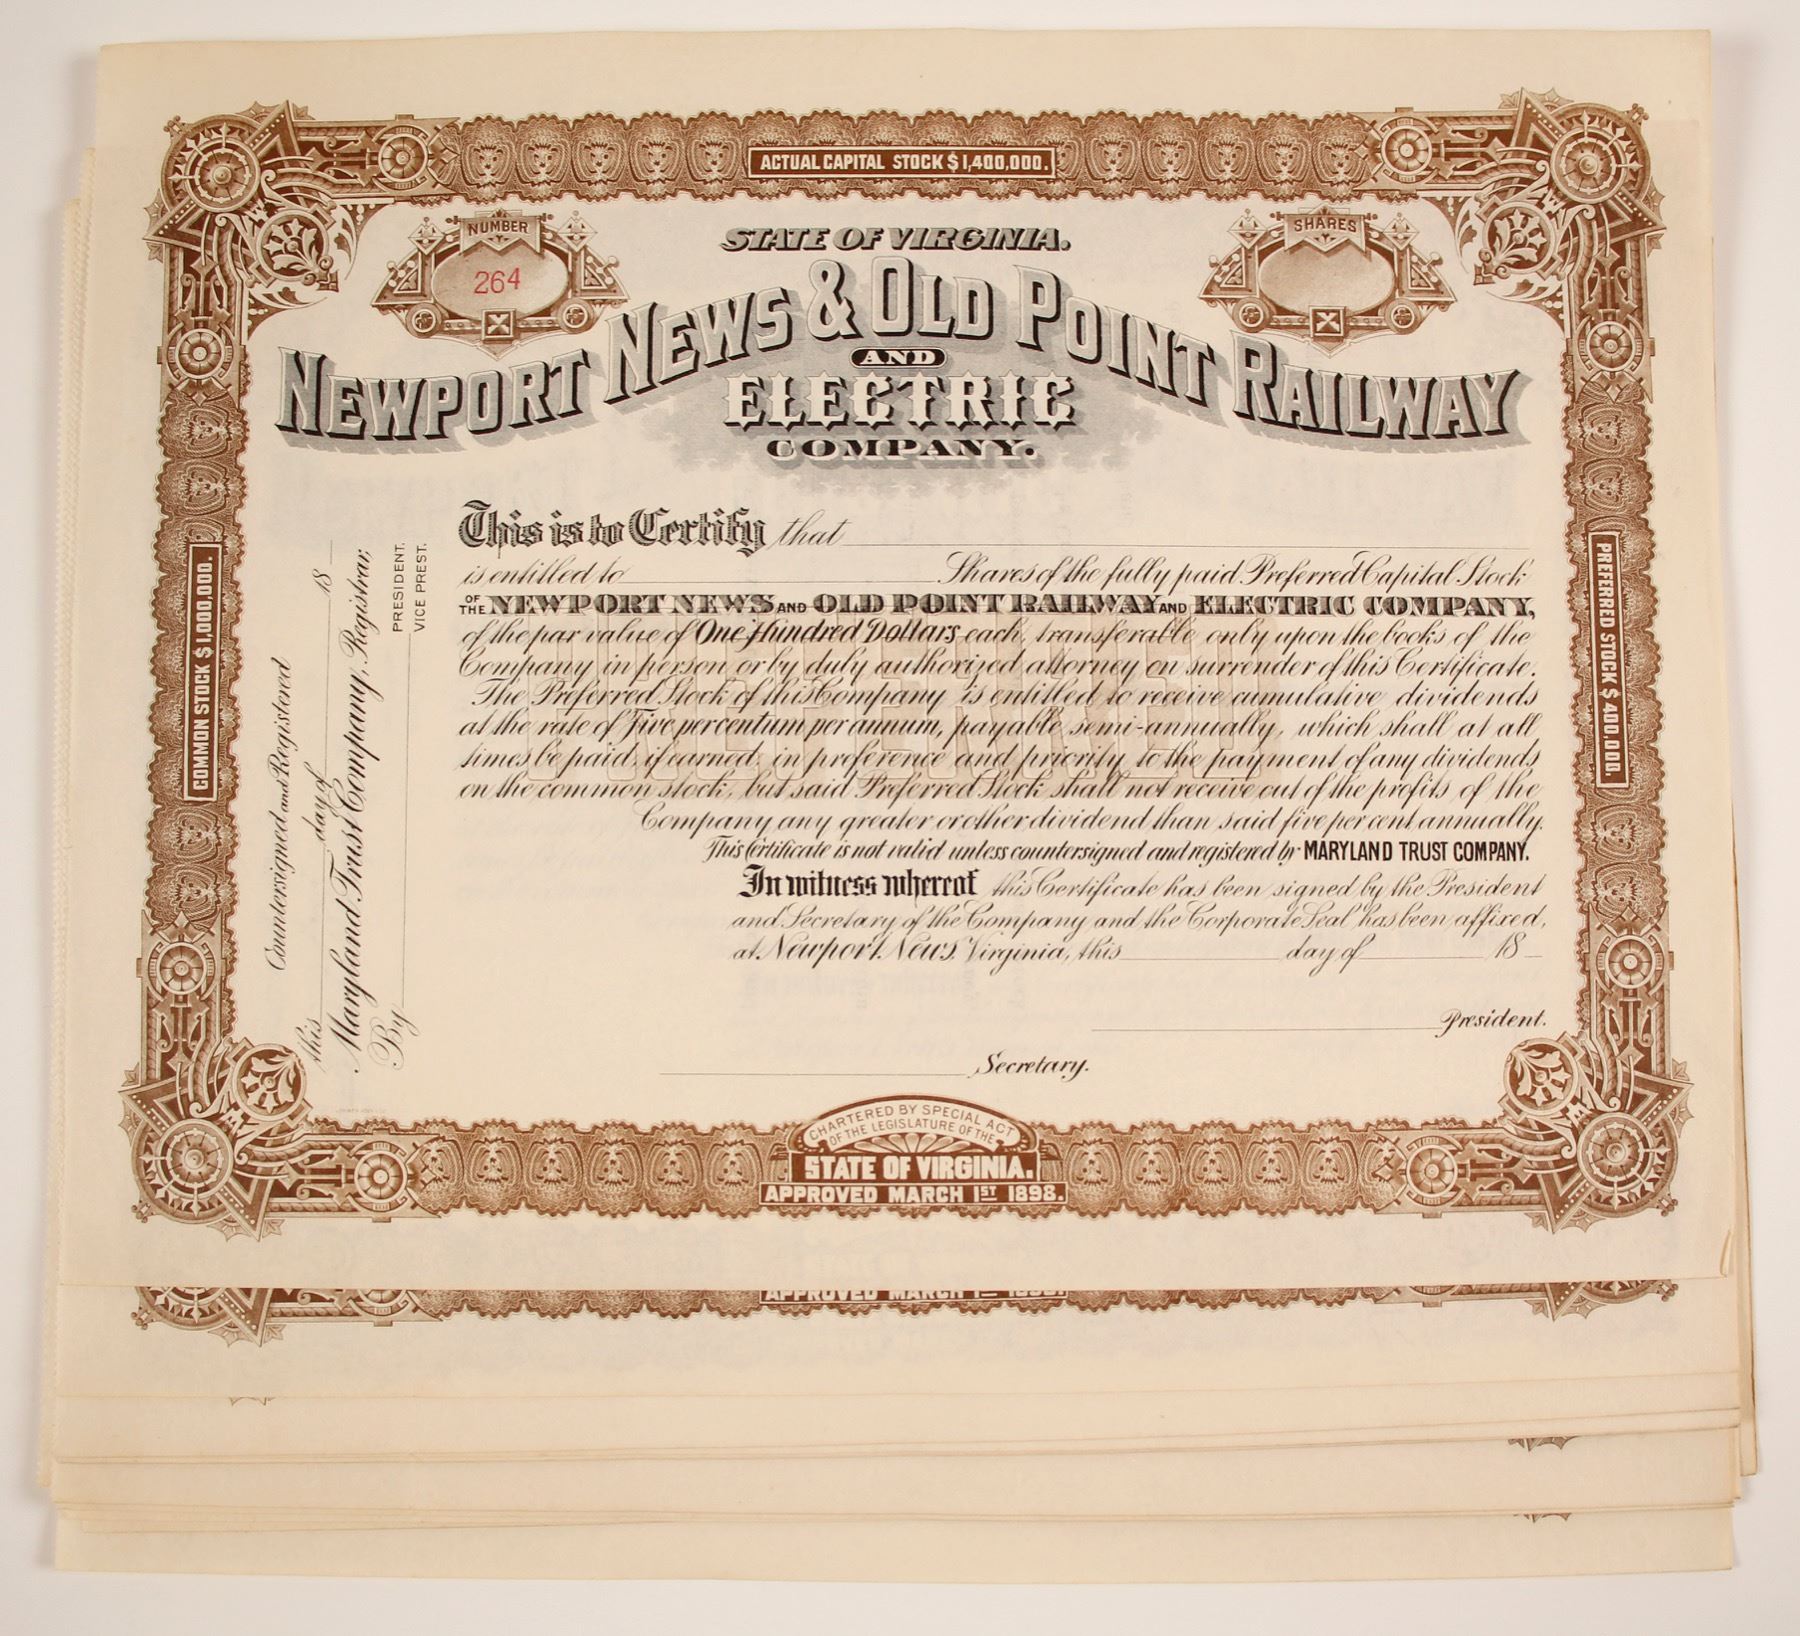 ACTUAL CAPITAL STOCK $1,400,000.
NUMBER
264
SHARES
STATE OF VIRGINIA.
NEWPORT NEWS & OLD POINT RAILWAY
AND
ELECTRIC
COMPANY.
This is to Certify that
is entitled to Shares of the fully paid Preferred Capital Stock
OF THE NEWPORT NEWS AND OLD POINT RAILWAY AND ELECTRIC COMPANY,
of the par value of One Hundred Dollars each, transferable only upon the books of the
Company in person or by duly authorized attorney on surrender of this Certificate.
The Preferred Stock of this Company is entitled to receive cumulative dividends
at the rate of Five per centum per annum, payable semi-annually, which shall at all
times be paid, if earned, in preference and priority to the payment of any dividends
on the common stock, but said Preferred Stock shall not receive out of the profits of the
Company any greater or other dividend than said five per cent annually.
This Certificate is not valid unless countersigned and registered by MARYLAND TRUST COMPANY.
In witness whereof this Certificate has been signed by the President
and Secretary of the Company and the Corporate Seal has been affixed,
at Newport News, Virginia, this day of 18
President.
Secretary.
Countersigned and Registered
this day of 18
Maryland Trust Company, Registrar,
By
PRESIDENT.
VICE PREST.
COMMON STOCK $1,000,000.
PREFERRED STOCK $400,000.
CHARTERED BY SPECIAL ACT
OF THE LEGISLATURE OF THE
STATE OF VIRGINIA.
APPROVED MARCH 1ST 1898.
APPROVED MARCH 1ST 1898.